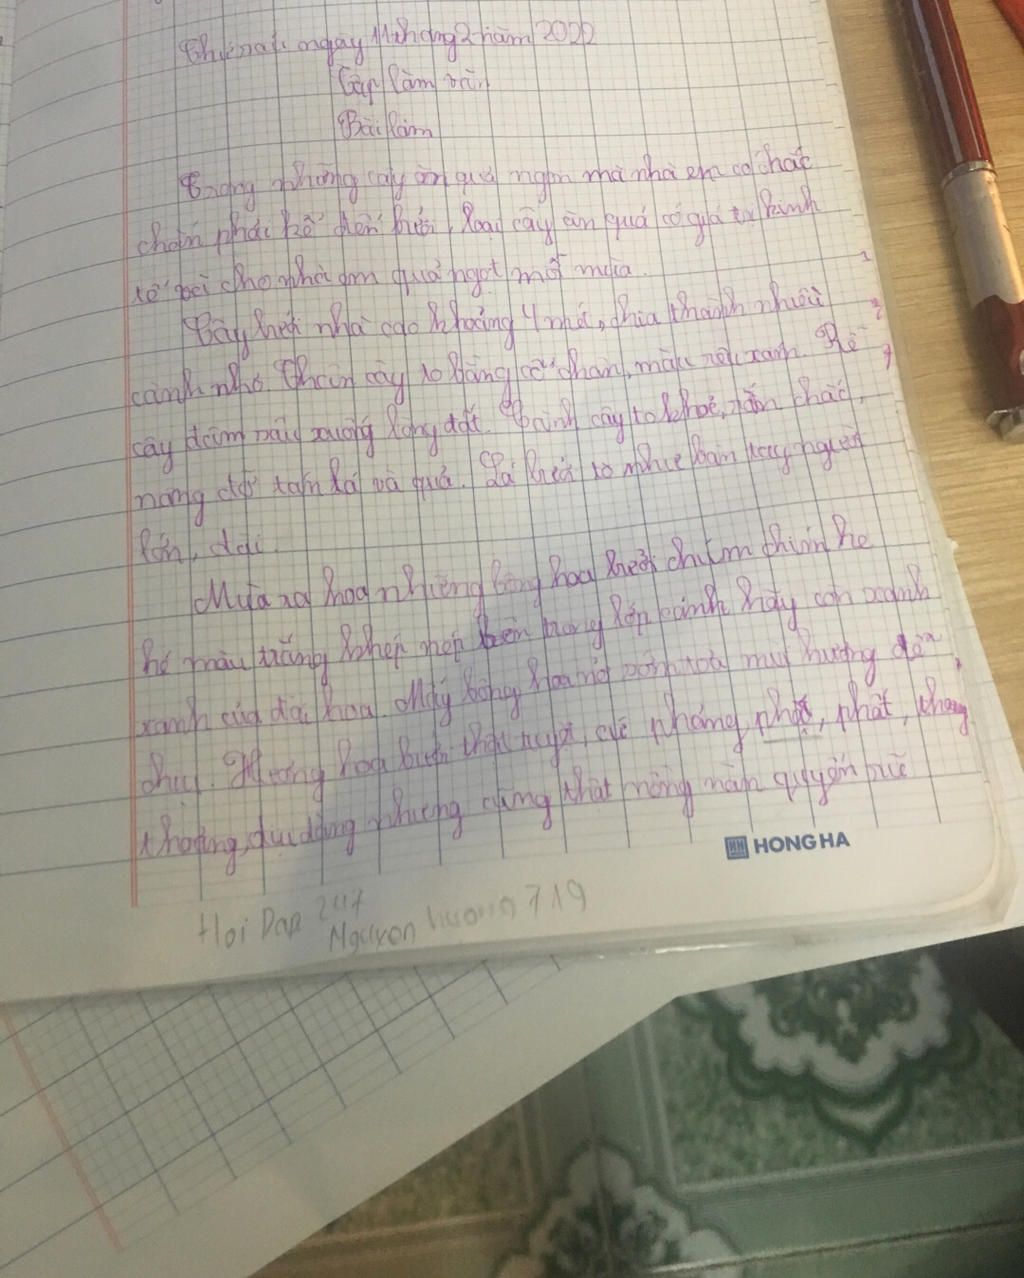 Thứ sáu ngày 11 tháng 2 năm 2022
Tập làm văn
Bài làm
Trong những cây ăn quả ngon mà nhà em có chắc
chắn phải kể đến bưởi, loại cây ăn quả có giá trị kinh
tế cho nhà em quả ngọt mỗi mùa.
Cây bưởi nhà cao khoảng 4 mét, chia thành nhiều
cành nhỏ. Thân cây to bằng cổ chân, màu nâu xanh. Rễ
cây đâm sâu xuống lòng đất. Cành cây to khoẻ, rắn chắc,
nang đỡ tán lá và quả. Lá bưởi to như bàn tay người
lớn, dài.
Mùa ra hoa những bông hoa bưởi chúm chím he
hé màu trắng khép nép bên trong lớp cánh hãy còn xanh
xanh của đài hoa. Mấy bông hoa nở sớm toả mùi hương
dịu. Hương hoa bưởi thật tuyệt, cứ phảng phất, phất, thoang
thoảng, dịu dàng nhưng cũng thật nồng nàn quyến rũ
HONG HA
Hoi Dap 247
Nguyen huong 719